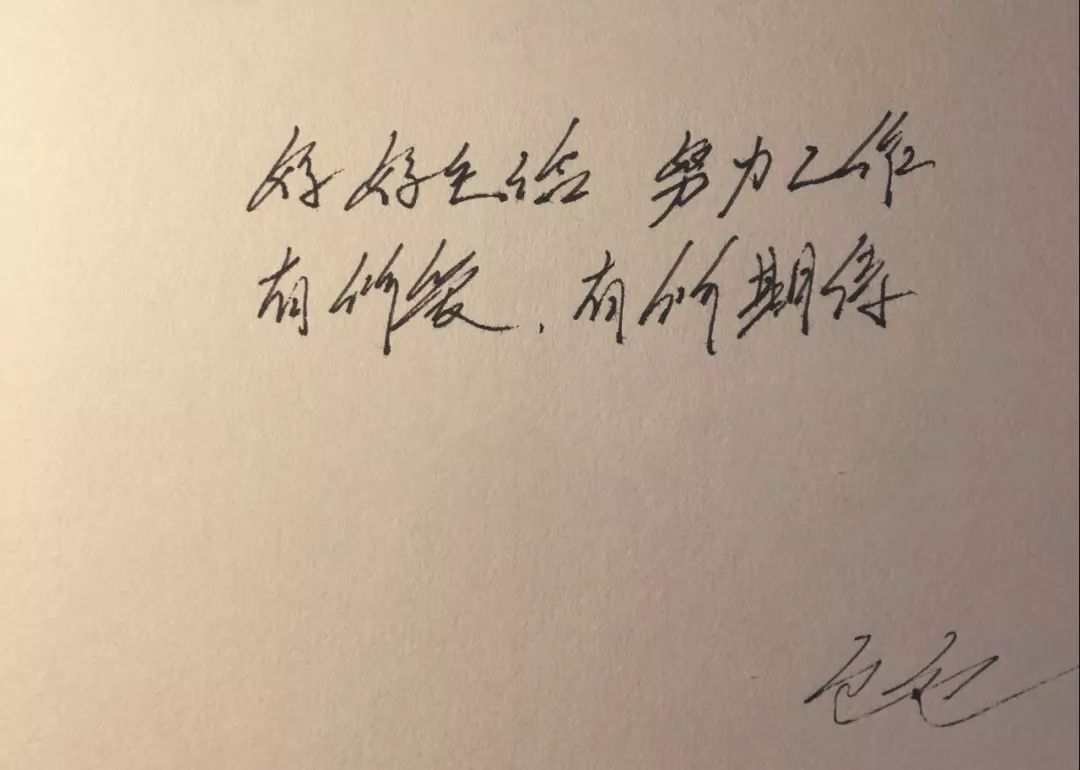 好好生活 努力工作
有所爱，有所期待